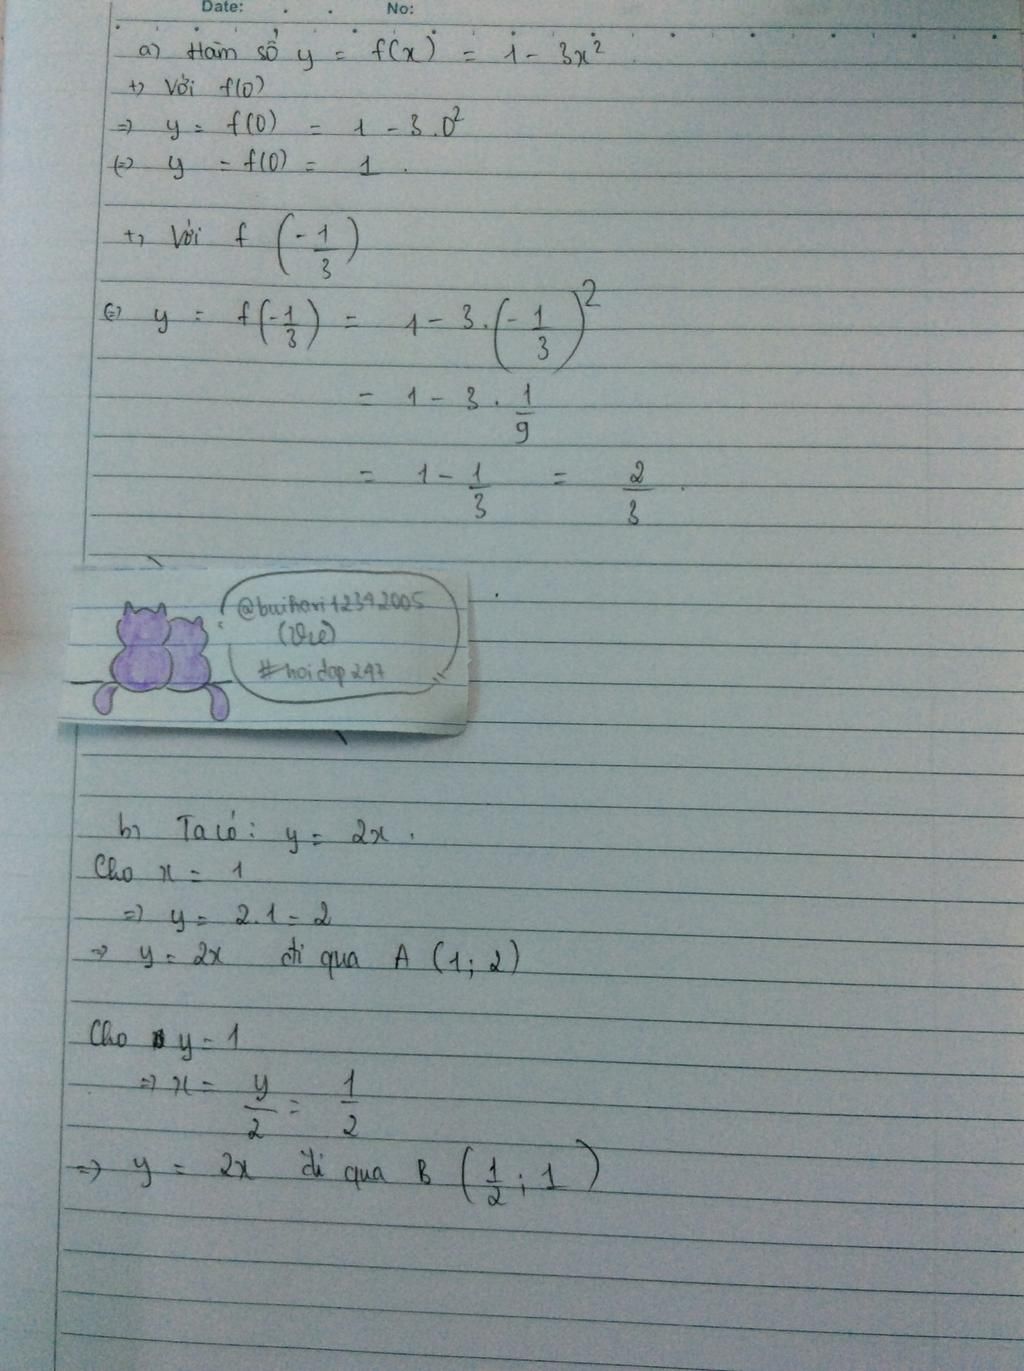 Date: . . No:
a) Hàm số y = f(x) = 1 - 3x²
+) Với f(0)
=> y = f(0) = 1 - 3.0²
(=) y = f(0) = 1.
+) Với f (-1/3)
(=) y = f(-1/3) = 1 - 3.(-1/3)²
= 1 - 3 . 1/9
= 1 - 1/3 = 2/3.
#hoidap247
b) Ta có: y = 2x.
Cho x = 1
=> y = 2.1 = 2
=> y = 2x đi qua A (1; 2)
Cho y = 1
=> x = y/2 = 1/2
=> y = 2x đi qua B (1/2; 1)